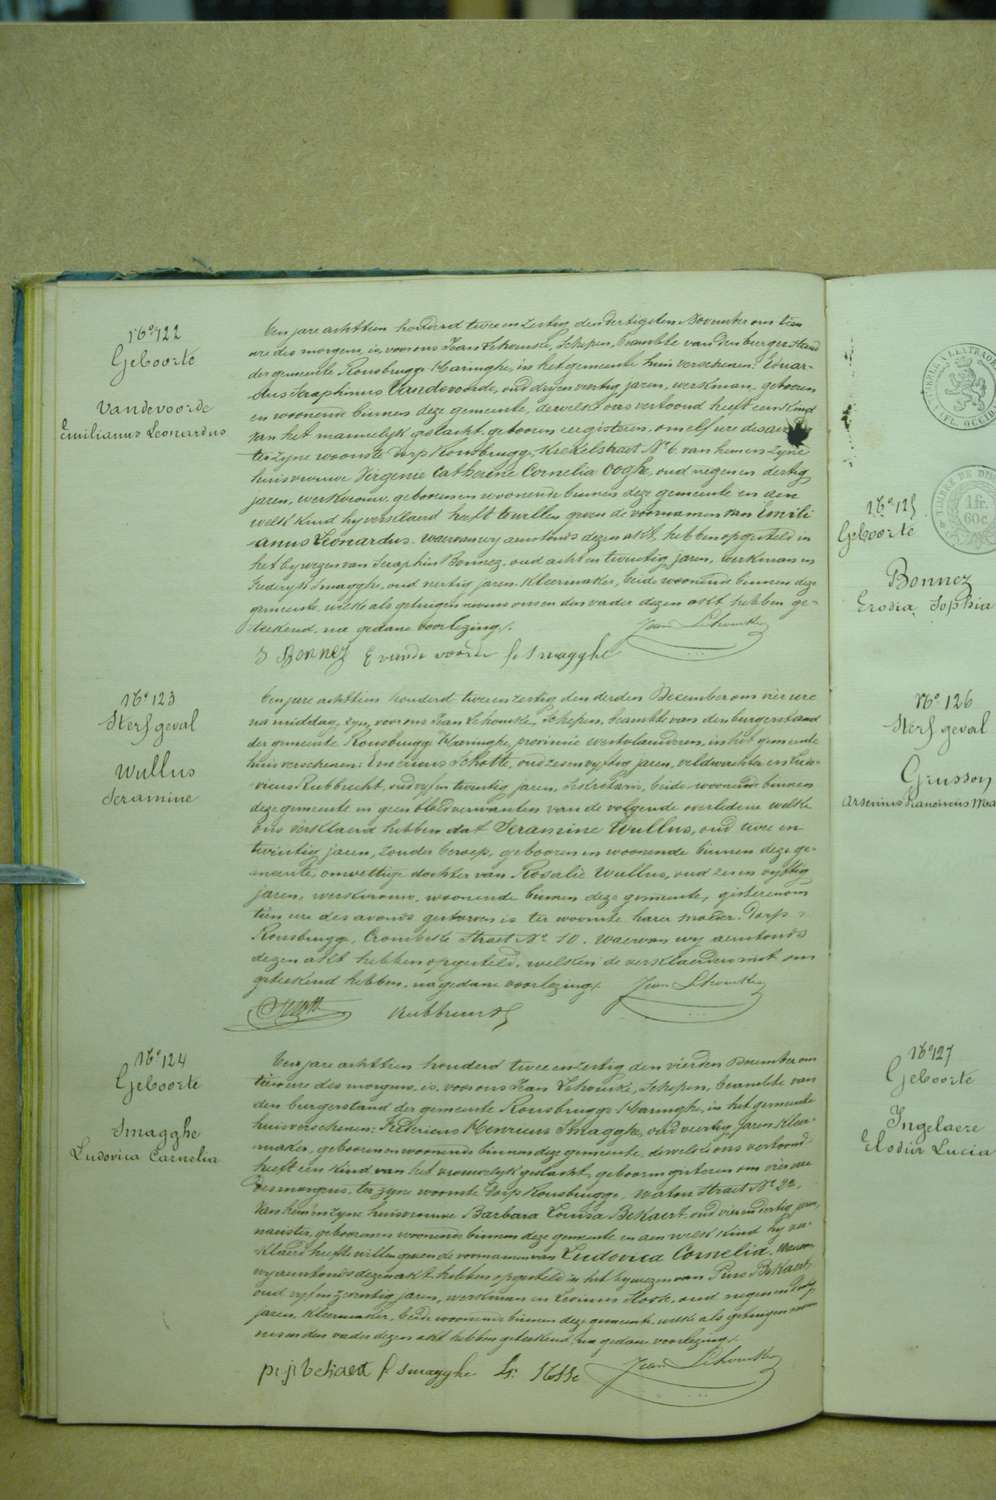 N° 122
Geboorte
Vandevoorde
Emilianus Leonardus
Ten jare achttien honderd twee en zestig, den dertigsten November om tien
ure des morgens, is voor ons Jean Lehouck, Schepen, beambte van den burgerstand
der gemeente Rousbrugge-Haringhe, in het gemeente huis verschenen: Eduar-
dus Seraphinus Vandevoorde, oud dry en veertig jaren, werkman, geboren
en woonende binnen deze gemeente, dewelke ons vertoond heeft een kind
van het mannelyk geslacht, geboren eergisteren, om elf ure des
te zyne woonste Dorp Rousbrugge, Kriekelstraet N° 6 van hem en zyne
huisvrouwe Virginie Catherine Cornelia Coghe, oud negen en dertig
jaren, werkvrouw, geboren en woonende binnen deze gemeente en aen
welk kind hy verklaerd heeft te willen geven de voornamen van Emili
anus Leonardus. Waervan wy aenstonds dezen akt hebben opgesteld in
het bywezen van Seraphin Bonnez, oud acht en twintig jaren, werkman en
Frederyk Smagghe, oud veertig jaren, kleermaker, beide woonende binnen deze
gemeente, welke als getuigen nevens ons en den vader dezen akt hebben ge-
teekend, na gedane voorlezing.
Jean Lehouck
S Bonnez E vande voorde f Smagghe
N° 123
Sterfgeval
Wullus
Seramine
Ten jare achttien honderd twee en zestig den derden December om vier ure
na middag, zyn voor ons Jean Lehouck, Schepen, beambte van den burgerstand
der gemeente Rousbrugge Haringhe, provincie westvlaenderen, in het gemeente
huis verschenen: Emericus Scholte, oud zes en vyftig jaren, veldwachter en Ludo-
vicus Rubbrecht, oud vyf en twintig jaren, secretaris, beide woonende binnen
deze gemeente en geen bloedverwanten van de volgende overledene welke
ons verklaerd hebben dat Seramine Wullus, oud twee en
twintig jaren, zonder beroep, geboren en woonende binnen deze ge-
meente, onwettige dochter van Rosalie Wullus, oud zes en vyftig
jaren, werkvrouw, woonende binnen deze gemeente, gisteren om
tien ure des avonds gestorven is ter woonste harer moeder, Dorp
Rousbrugge, Crombeke Straet N° 10. Waervan wy aenstonds
dezen akt hebben opgesteld, welken de verklaerders met ons
geteekend hebben, na gedane voorlezing.
Jean Lehouck
Rubbrecht
N° 124
Geboorte
Smagghe
Ludovica Carnelia
Ten jare achttien honderd twee en zestig den vierden December om
tien ure des morgens, is voor ons Jean Lehouck, Schepen, beambte van
den burgerstand der gemeente Rousbrugge Haringhe, in het gemeente
huis verschenen: Fredericus Henricus Smagghe, oud veertig jaren kleer-
maker, geboren en woonende binnen deze gemeente, dewelke ons vertoond
heeft een kind van het vrouwelyk geslacht, geboren gisteren om vier ure
des morgens, ter zyne woonste Dorp Rousbrugge, Waton straet N° 22,
van hem en zyne huisvrouwe Barbara Louisa Bekaert, oud vier en dertig jaren,
naeister, geboren en woonende binnen deze gemeente en aen welk kind hy ver-
klaerd heeft te willen geven de voornamen van Ludovica Cornelia. Waervan
wy aenstonds dezen akt hebben opgesteld in het bywezen van Pius Bekaert,
oud vyf en zeventig jaren, werkman en Leonus Hosse, oud negen en
jaren, kleermaker, beide woonende binnen deze gemeente, welke als getuigen nevens
ons en den vader dezen akt hebben geteekend, na gedane voorlezing.
pi.ji bekaert f smagghe L: Hosse Jean Lehouck
N° 125
Geboorte
Bonnez
Erosia, Sophia
1 fr.
60 c.
N° 126
Sterfgeval
Grusson
Arsenius
N° 127
Geboorte
Ingelaere
Elodie Lucia